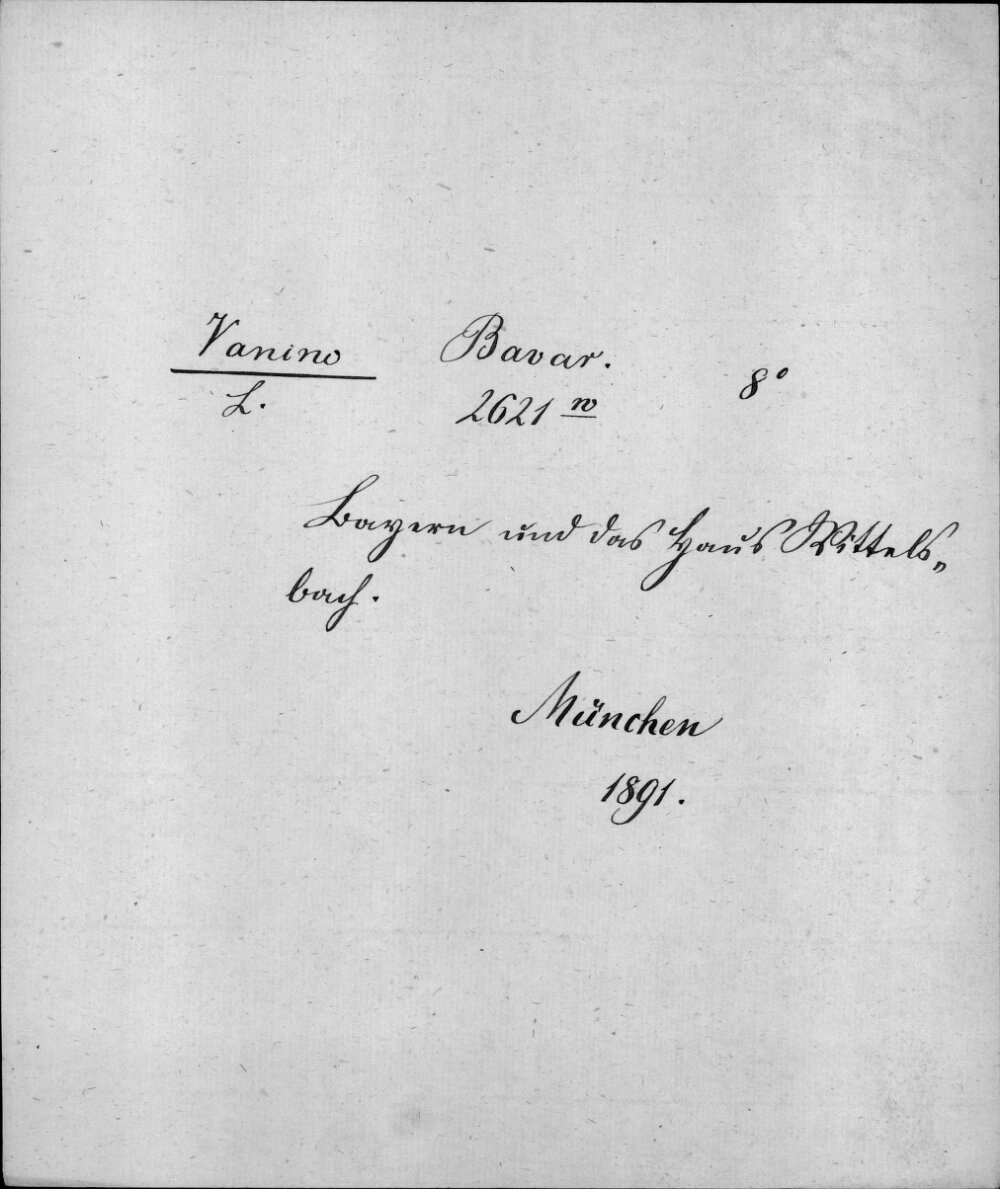 Vanino Bavar. 8°
L. 2621 w
Bayern und das Haus Wittels„
bach.
München
1891.